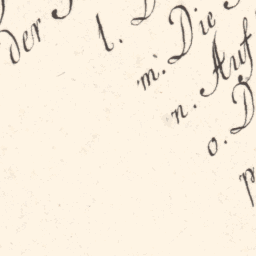 der
l. D
m. Die
n. Auf
o. D
p